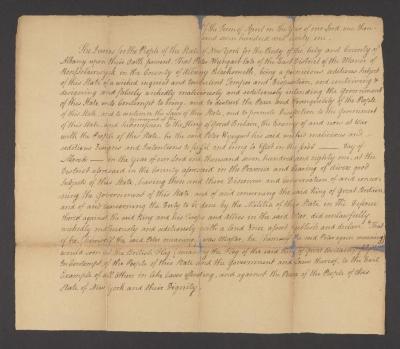 Of the Term of April in the Year of our Lord one thou-
sand seven hundred and eighty one.
The Jurors for the People of the State of New York for the Body of the City and County of
Albany upon their Oath present That Peter Wyngart late of the East District of the Manor of
Rensselaerwyck in the County of Albany Blacksmith, being a pernicious seditious Subject
of this State of a wicked and turbulent Temper and Disposition, and contriving &
devising and falsely wickedly maliciously and seditiously intending the Government
of this State into Contempt to bring, and to disturb the Peace and Tranquility of the People
of this State, and to the Laws of this State, and to promote Disaffection to the Government
of this State, and Submission to the King of Great Britain, the Enemy of and now at War
with the People of this State, he the said Peter Wyngart his said wicked malicious and
seditious Designs and Intentions to fulfil and bring to Effect on the first — Day of
March — in the Year of our Lord one thousand seven hundred and eighty one, at the
District aforesaid in the County aforesaid in the Presence and Hearing of divers good
Subjects of this State, having then and there Discourse and Conversation of and concern-
ing the Government of this State and of and concerning the said King of Great Britain
and of and concerning the Duty to be done by the Militia of this State in the Defence
thereof against the said King and his Troops and Allies in the said War, did unlawfully
wickedly maliciously and seditiously with a loud Voice assert publish and declare That
if he (himself the said Peter meaning) was he (himself the said Peter again meaning)
would soon the British Flag (meaning the Flag of the said King of Great Britain)
in Contempt of the People of this State and the Government and Laws thereof, to the Evil
Example of all others in like Cases offending, and against the Peace of the People of this
State of New York and their Dignity.